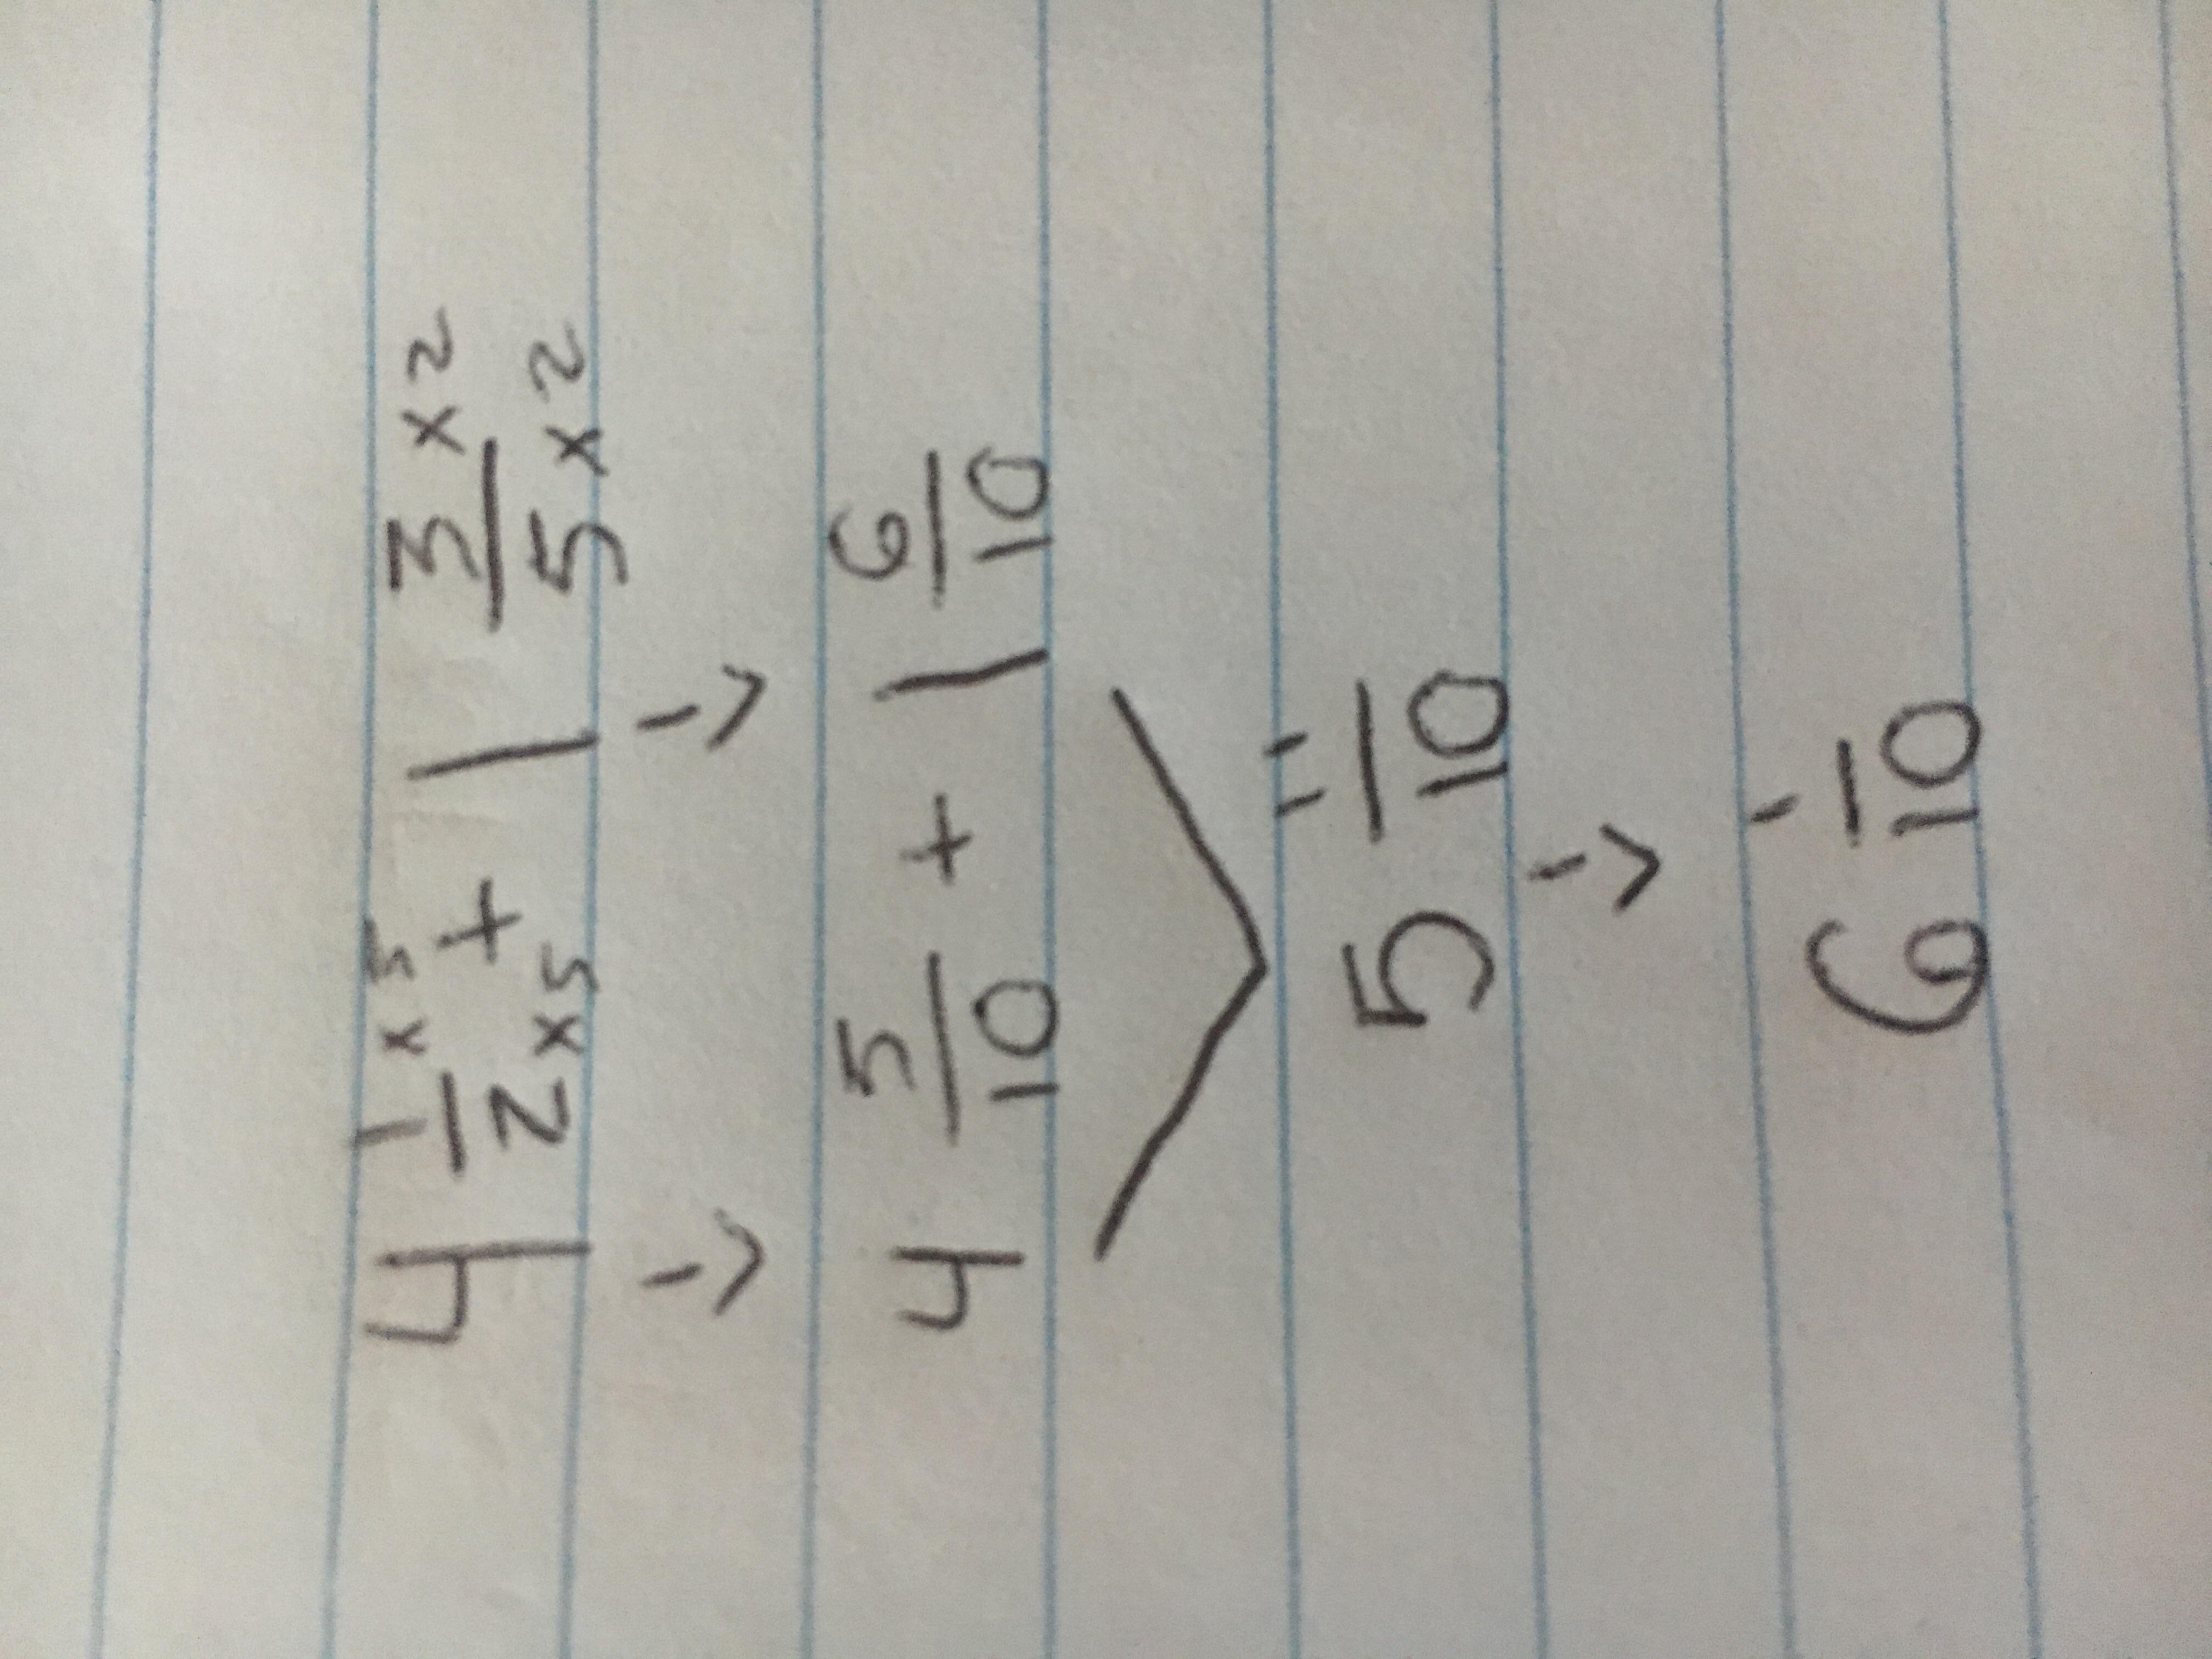 4 1/2 ×5 ×5 + 1 3/5 ×2 ×2
↓ ↓
4 5/10 + 1 6/10
5 11/10
↓
6 1/10